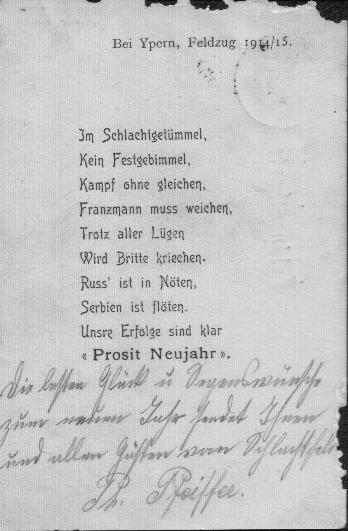 Bei Ypern, Feldzug 1914/15.
Im Schlachtgetümmel,
Kein Festgebimmel,
Kampf ohne gleichen,
Franzmann muss weichen,
Trotz aller Lügen
Wird Britte kriechen.
Russ' ist in Nöten,
Serbien ist flöten.
Unsre Erfolge sind klar
« Prosit Neujahr ».
Die besten Glück u Segenswünsche
zum neuen Jahr sendet Ihnen
und allen Gästen vom Schlachtfeld
Th. Pfeiffer.